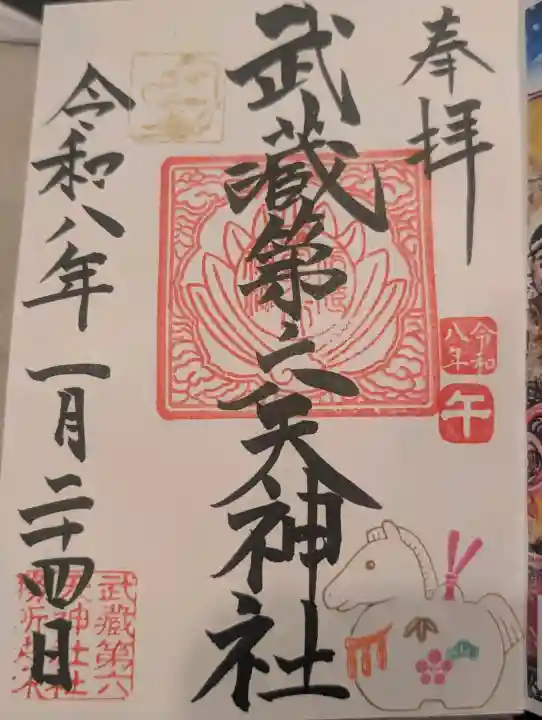 奉拝
令和
八年
午
武蔵第六天神社
令和八年一月二十四日
武蔵第六
天神社